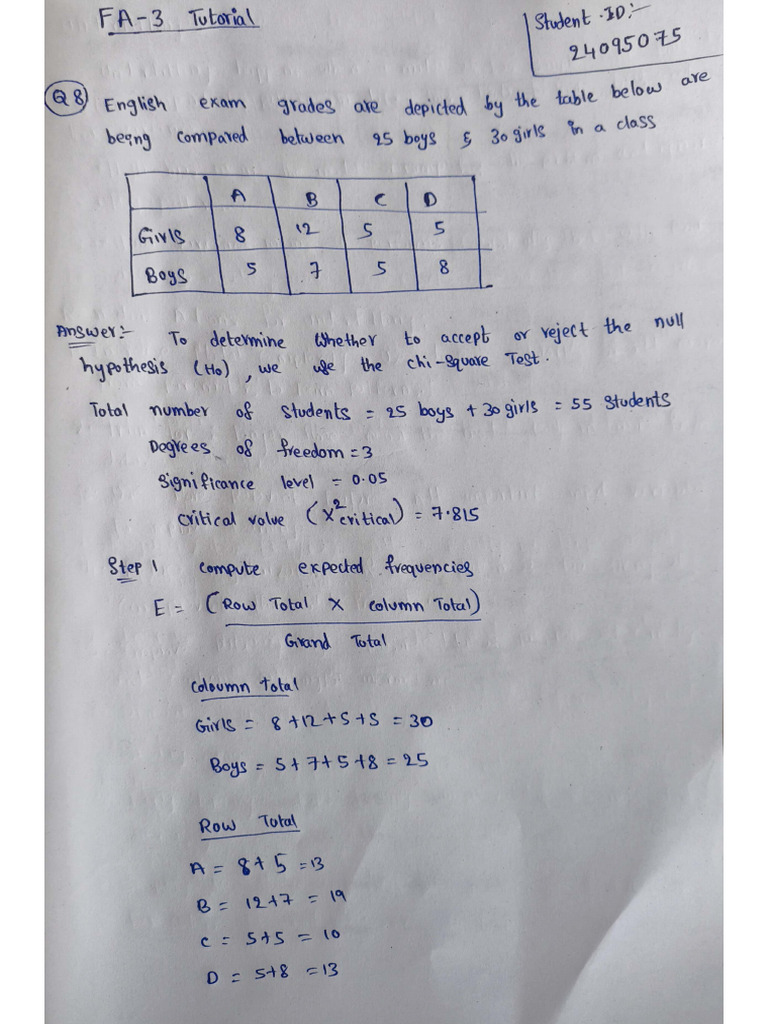 FA-3 Tutorial
Student ID:-
24095075
Q8 English exam grades are depicted by the table below are
being compared between 25 boys & 30 girls in a class
A B C D
Girls 8 12 5 5
Boys 5 7 5 8
Answer:- To determine whether to accept or reject the null
hypothesis (H0), we use the chi-square Test.
Total number of students = 25 boys + 30 girls = 55 students
Degrees of freedom = 3
Significance level = 0.05
critical value (X² critical) = 7.815
Step 1 compute expected frequencies
E = (Row Total X column Total)
Grand Total
Coloumn total
Girls = 8+12+5+5 = 30
Boys = 5+7+5+8 = 25
Row Total
A = 8+5 = 13
B = 12+7 = 19
C = 5+5 = 10
D = 5+8 = 13